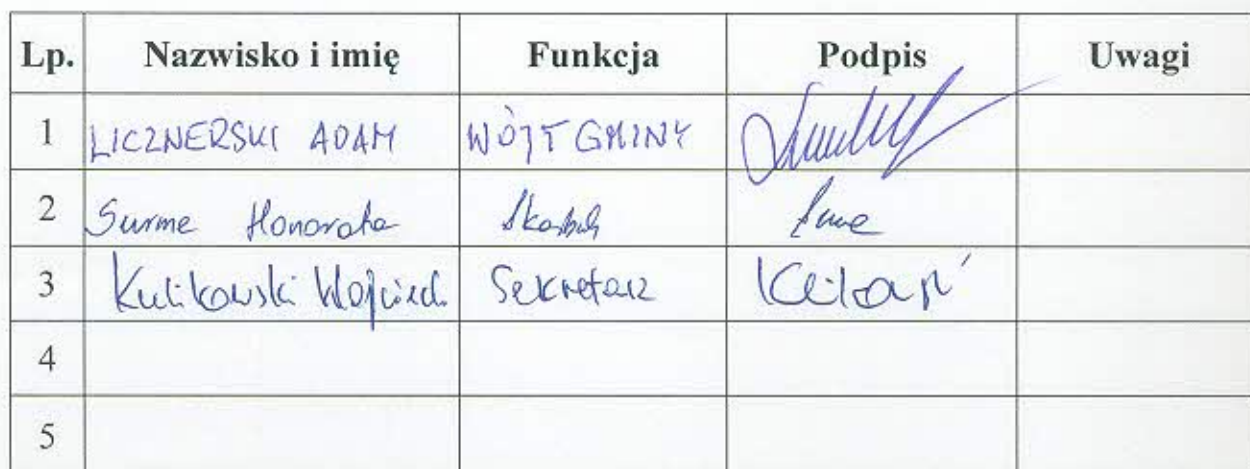 Lp. Nazwisko i imię Funkcja Podpis Uwagi
1 LICZNERSKI ADAM WÓJT GMINY
2 Surme Honorata Skarbnik
3 Kulikowski Wojciech Sekretarz
4
5